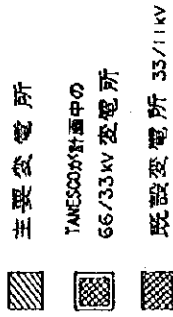 主要変電所
TANESCOが計画中の
66/33kV 変電所
既設変電所 33/11kV